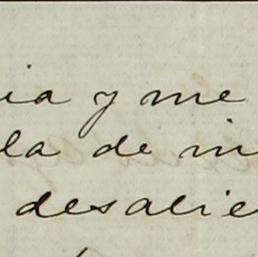 ia y me
la de m
desalie